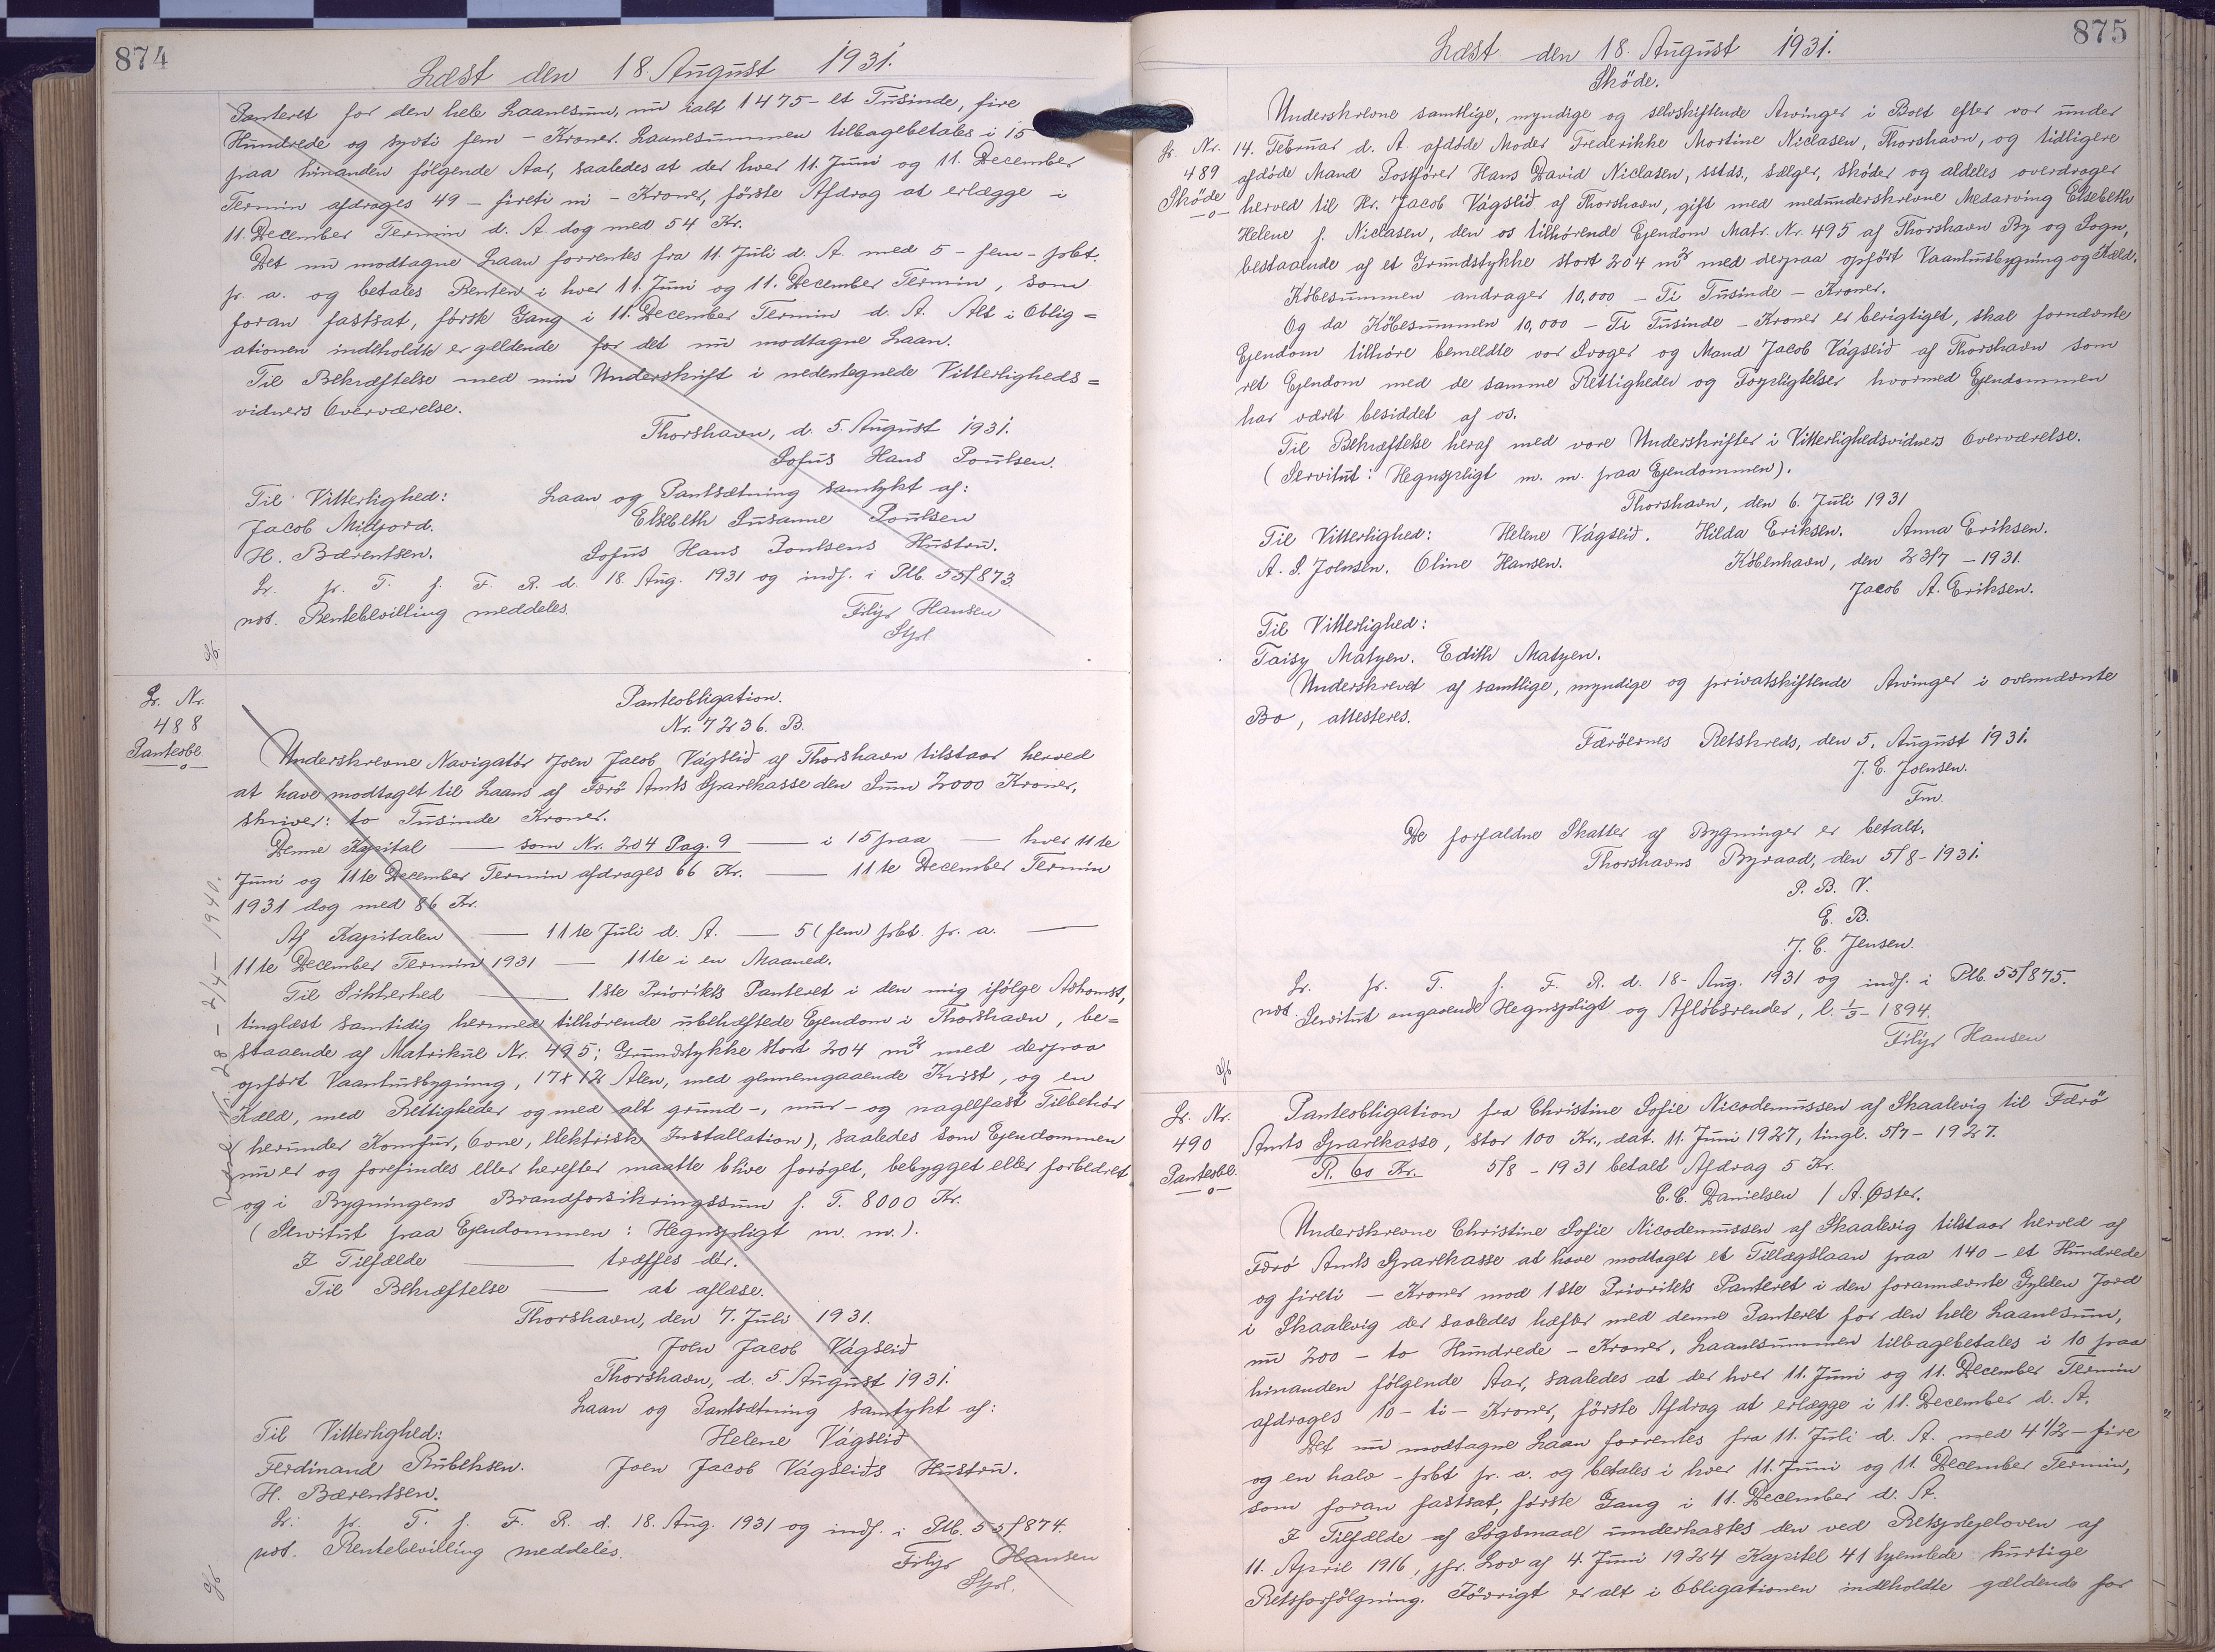 874
Læst den 18. August 1931.
Panteret for den hele Laanesum, nu ialt 1475 - et Tusinde, fire
Hundrede og syvti fem - Kroner. Laanesummen tilbagebetales i 15
paa hinanden følgende Aar, saaledes at der hver 11. Juni og 11. December
Termin afdrages 49 - fireti ni - Kroner, første Afdrag at erlægge i
11. December Termin d. A. dog med 54 Kr.
Det nu modtagne Laan forrentes fra 11. Juli d. A. med 5 - fem - prct.
pr. a. og betales Renten i hver 11. Juni og 11. December Termin, som
foran fastsat, første Gang i 11. December Termin d. A. Alt i Oblig=
ationen indeholdte er gældende for det nu modtagne Laan.
Til Bekræftelse med min Underskrift i nedentegnede Vitterligheds=
vidners Overværelse.
Thorshavn, d. 5. August 1931.
Sofus Hans Poulsen.
Til Vitterlighed: Laan og Pantsætning samtykt af:
Jacob Midjord. Elsebeth Susanne Poulsen
H. Bærentsen. Sofus Hans Poulsens Hustru.
Lr. pr. T. f. F. R. d. 18. Aug. 1931 og indf. i Ptb. 55/873.
not. Rentebevilling meddeles. Filip Hansen
Stpl.
Lr. Nr.
488
Panteobl.
Panteobligation.
Nr. 7236. B.
Underskrevne Navigatør Joen Jacob Vágseið af Thorshavn tilstaar herved
at have modtaget til Laans af Færø Amts Sparekasse den Sum 2000 Kroner,
skriver: to Tusinde Kroner.
Denne Kapital — som Nr. 204 Pag. 9 — i 15 paa — hver 11te
Juni og 11te December Termin afdrages 66 Kr. — 11te December Termin
1931 dog med 86 Kr.
Af Kapitalen — 11te Juli d. A. — 5 (fem) prct. pr. a. —
11te December Termin 1931 — 11te i en Maaned.
Til Sikkerhed — 1ste Prioritets Panteret i den mig ifølge Adkomst,
tinglæst samtidig hermed tilhørende ubehæftede Ejendom i Thorshavn, be=
staaende af Matrikul Nr. 495; Grundstykke stort 204 m² med derpaa
opført Vaaningsbygning, 17 x 12 Alen, med gennemgaaende Kvist, og en
Kæld, med Rettigheder og med alt grund-, mur- og nagelfast Tilbehør
(herunder Komfur, Ovne, elektrisk Installation), saaledes som Ejendommen
nu er og forefindes eller herefter maatte blive forøget, bebygget eller forbedret
og i Bygningens Brandforsikringssum p. T. 8000 Kr.
(Servitut paa Ejendommen: Hegnspligt m. m.).
I Tilfælde — træffes dér.
Til Bekræftelse — at aflæse.
Thorshavn, den 7. Juli 1931.
Joen Jacob Vágseið
Thorshavn, d. 5. August 1931.
Laan og Pantsætning samtykt af:
Til Vitterlighed: Helene Vágseið
Ferdinand Rubeksen. Joen Jacob Vágseiðs Hustru.
H. Bærentsen.
Lr. pr. T. f. F. R. d. 18. Aug. 1931 og indf. i Ptb. 55/874.
not. Rentebevilling meddeles. Filip Hansen
Stpl.
875
Læst den 18. August 1931.
Skøde.
Lr. Nr.
489
Skøde
Underskrevne samtlige, myndige og selvskiftende Arvinger i Boet efter vor under
14. Februar d. A. afdøde Moder Frederikke Mortine Niclasen, Thorshavn, og tidligere
afdøde Mand Postfører Hans David Niclasen, sstds., sælger, skøder og aldeles overdrager
herved til Hr. Jacob Vágseið af Thorshavn, gift med medunderskrevne Medarving Elsebeth
Helene f. Niclasen, den os tilhørende Ejendom Matr. Nr. 495 af Thorshavn By og Sogn,
bestaaende af et Grundstykke stort 204 m² med derpaa opført Vaaningsbygning og Kæld.
Købesummen andrager 10,000 - Ti Tusinde - Kroner.
Og da Købesummen 10,000 - Ti Tusinde - Kroner er berigtiget, skal fornævnte
Ejendom tilhøre bemeldte vor Svoger og Mand Jacob Vágseið af Thorshavn som
ret Ejendom med de samme Rettigheder og Forpligtelser hvormed Ejendommen
har været besiddet af os.
Til Bekræftelse heraf med vore Underskrifter i Vitterlighedsvidners Overværelse.
(Servitut: Hegnspligt m. m. paa Ejendommen).
Thorshavn, den 6. Juli 1931
Til Vitterlighed: Helene Vágseið. Hilda Eriksen. Anna Eriksen.
A. S. Joensen. Oline Hansen. København, den 23/7 - 1931.
Jacob A. Eriksen.
Til Vitterlighed:
Taisy Matzen. Edith Matzen.
Underskrevet af samtlige, myndige og privatskiftende Arvinger i ovennævnte
Bo, attesteres.
Færøernes Retskreds, den 5. August 1931.
J. E. Joensen.
Fm.
De forfaldne Skatter af Bygninger er betalt.
Thorshavns Byraad, den 5/8 - 1931.
P. B. V.
E. B.
J. C. Jensen.
Lr. pr. T. f. F. R. d. 18. Aug. 1931 og indf. i Ptb. 55/875.
not. Servitut angaaende Hegnspligt og Afløbsrender, l. 1/5 - 1894.
Filip Hansen
Lr. Nr.
490
Panteobl.
Panteobligation fra Christine Sofie Nicodemussen af Skaalevig til Færø
Amts Sparekasse, stor 100 Kr., dat. 11. Juni 1927, tingl. 5/7 - 1927.
R. 60 Kr. 5/8 - 1931 betalt Afdrag 5 Kr.
C. C. Danielsen / A. Øster.
Underskrevne Christine Sofie Nicodemussen af Skaalevig tilstaar herved af
Færø Amts Sparekasse at have modtaget et Tillægslaan paa 140 - et Hundrede
og fireti - Kroner mod 1ste Prioritets Panteret i den forannævnte Gylden Jord
i Skaalevig der saaledes hæfter med denne Panteret for den hele Laanesum,
nu 200 - to Hundrede - Kroner. Laanesummen tilbagebetales i 10 paa
hinanden følgende Aar, saaledes at der hver 11. Juni og 11. December Termin
afdrages 10 - ti - Kroner, første Afdrag at erlægge i 11. December d. A.
Det nu modtagne Laan forrentes fra 11. Juli d. A. med 4½ - fire
og en halv - prct pr. a. og betales i hver 11. Juni og 11. December Termin,
som foran fastsat, første Gang i 11. December d. A.
I Tilfælde af Søgsmaal underkastes den ved Retsplejeloven af
11. April 1916, jfr. Lov af 4. Juni 1924 Kapitel 41 hjemlede hurtige
Retsforfølgning. Iøvrigt er alt i Obligationen indeholdte gældende for